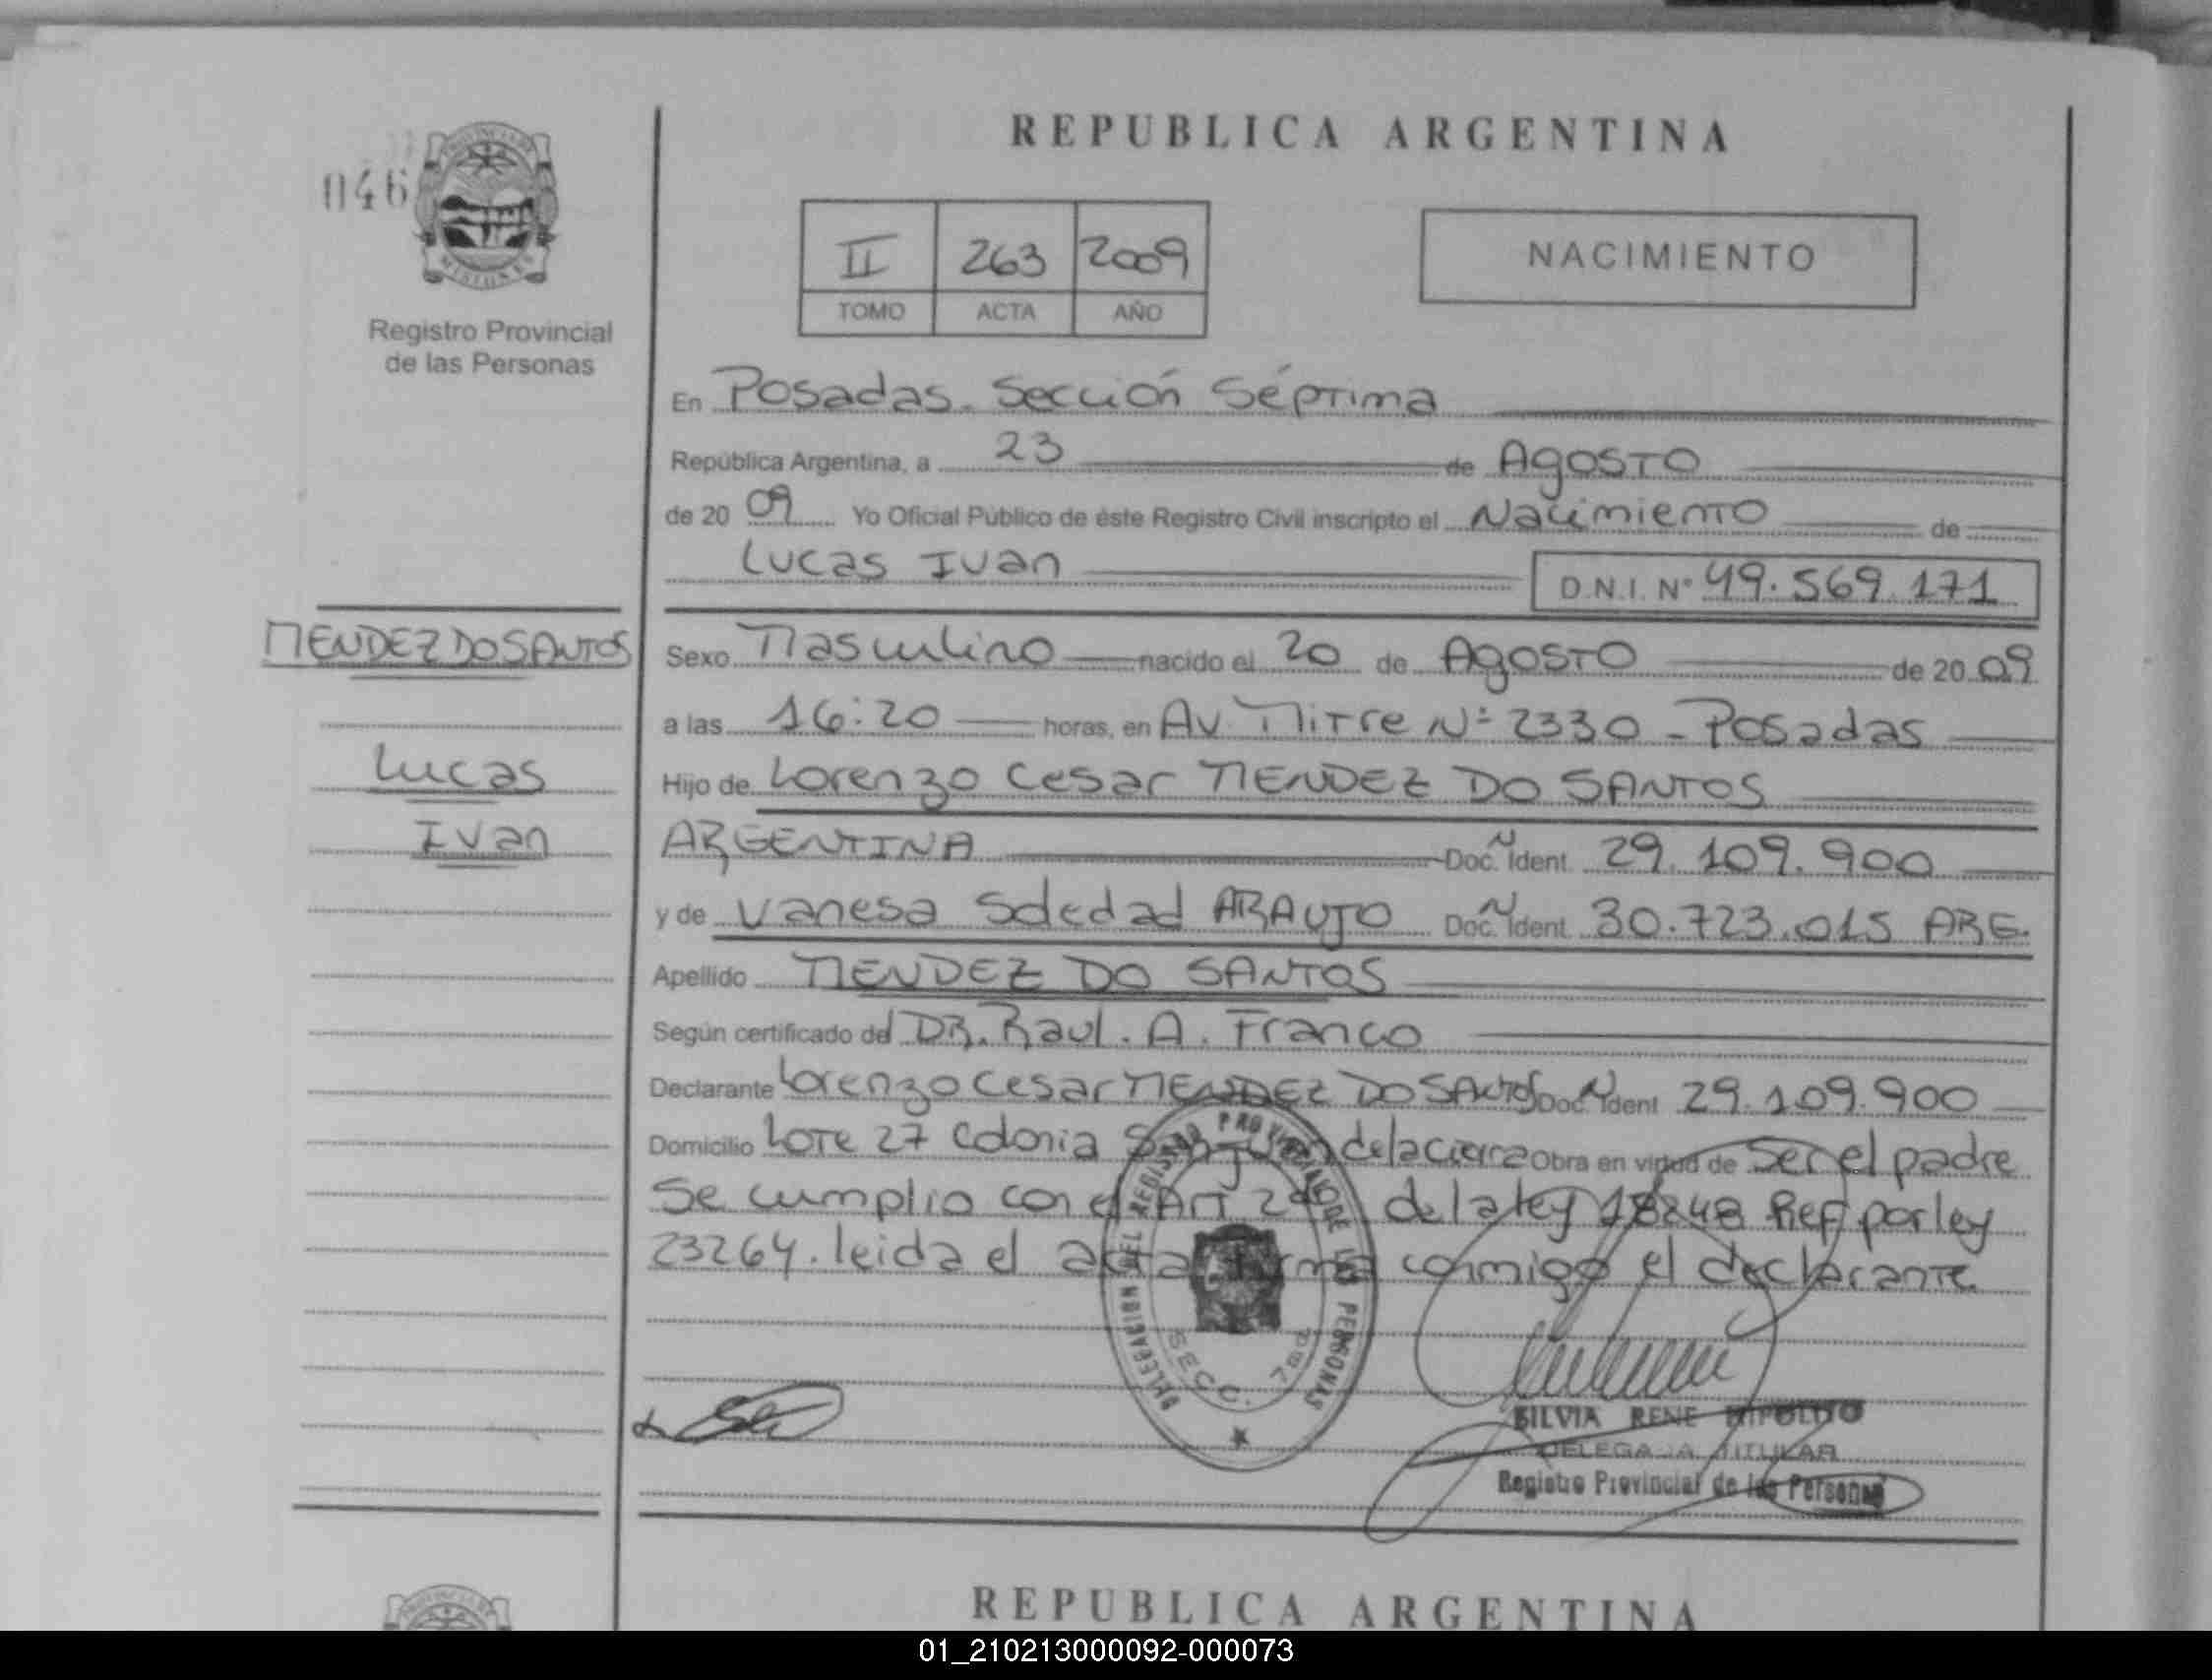 REPUBLICA ARGENTINA
046
PROVINCIA DE
MISIONES
Registro Provincial
de las Personas
II 263 2009
TOMO ACTA AÑO
NACIMIENTO
En Posadas. Sección Séptima
República Argentina, a 23 de Agosto
de 20 09 Yo Oficial Público de éste Registro Civil inscripto el Nacimiento de
Lucas Ivan D.N.I. Nº 49.569.171
MENDEZ DO SANTOS
Lucas
Ivan
Sexo Masculino nacido el 20 de Agosto de 20 09
a las 16:20 horas, en Av. Mitre Nº 2330 - Posadas
Hijo de Lorenzo Cesar MENDEZ DO SANTOS
ARGENTINA Doc. Ident. 29.109.900
y de Vanesa Soledad ARAUJO Doc. Ident. 30.723.015 ARG.
Apellido MENDEZ DO SANTOS
Según certificado del DR. Raul. A. Franco
Declarante Lorenzo Cesar MENDEZ DO SANTOS Doc. Ident 29.109.900
Domicilio Lote 27 Colonia de la Obra en virtud de Ser el padre
Se cumplio con el Art de la ley 18248 Ref por ley
23264. leida el acta firma conmigo el declarante
DELEGACION DEL REGISTRO PROVINCIAL DE LAS PERSONAS
SECC. 7ma
SILVIA RENE HIPOLITO
DELEGADA TITULAR
Registro Provincial de las Personas
REPUBLICA ARGENTINA
01_210213000092-000073